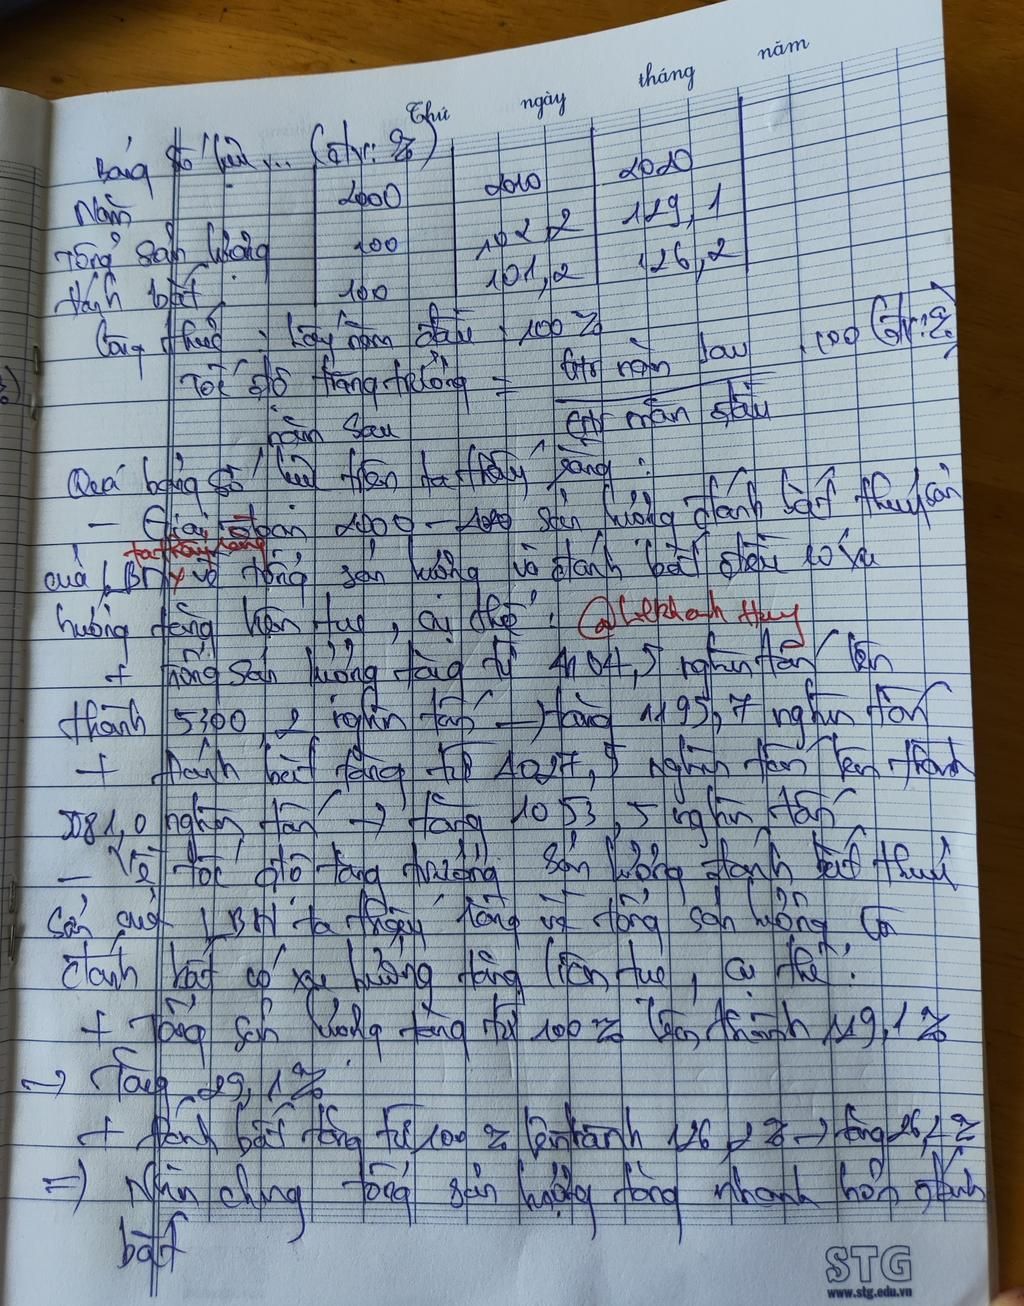 Thứ ngày tháng năm
Bảng số liệu... (đtv: %)
Năm 2000 2010 2020
Tổng sản lượng 100 102,2 129,1
đánh bắt 100 101,2 126,2
Công thức: Lấy năm đầu: 100%
Tốc độ tăng trưởng = Gtr năm sau . 100 (đtv: %)
năm sau Gtr năm đầu
Quá bảng số liệu trên ta thấy rằng:
- Giai đoạn 2000 - 2020 sản lượng đánh bắt thuỷ sản
ta thấy rằng
của LBN về tổng sản lượng và đánh bắt đều có xu
hướng tăng liên tục, cụ thể: @Lekhanh Huy
+ Tổng sản lượng tăng từ 4104,5 nghìn tấn lên
thành 5300,2 nghìn tấn → tăng 1195,7 nghìn tấn
+ đánh bắt tăng từ 1027,5 nghìn tấn lên thành
2081,0 nghìn tấn → tăng 1053,5 nghìn tấn
- Về tốc độ tăng trưởng sản lượng đánh bắt thuỷ
sản của LBN ta thấy rằng về tổng sản lượng và
đánh bắt có xu hướng tăng liên tục, cụ thể:
+ Tổng sản lượng tăng từ 100% lên thành 129,1%
→ Tăng 29,1%
+ đánh bắt tăng từ 100% lên thành 126,2% → tăng 26,2%
=> Nhìn chung tổng sản lượng tăng nhanh hơn đánh
bắt
STG
www.stg.edu.vn